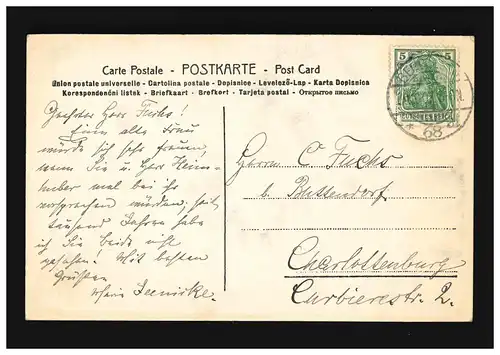 Carte Postale - POSTKARTE - Post Card
Union postale universelle - Cartolina postale - Dopisnice - Levelező-Lap - Karta Dopisnica
Korespondenční lístek - Briefkaart - Brefkort - Tarjeta postal - Открытое письмо
5 5
68
Geehrter Herr Fuchs!
Einen alten
würde sich sehr freuen,
wenn Sie u. Herr
mal bei ihr
vorsprechen würden; seit
tausend Jahren habe
ich Sie beide nicht
gesehen! Mit besten
Grüßen
Herrn C. Fuchs
b. Buttendorf
Charlottenburg
2.